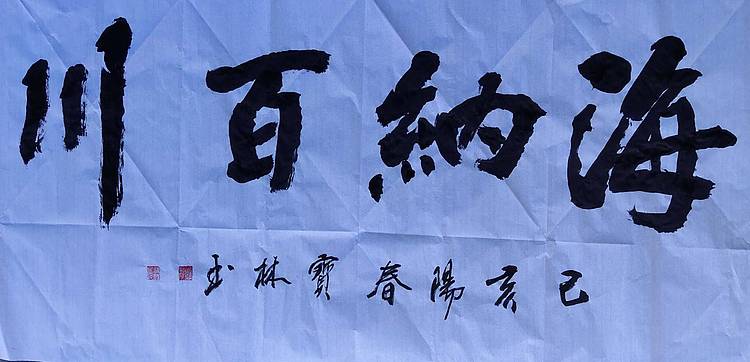 海納百川
己亥陽春寶林玉